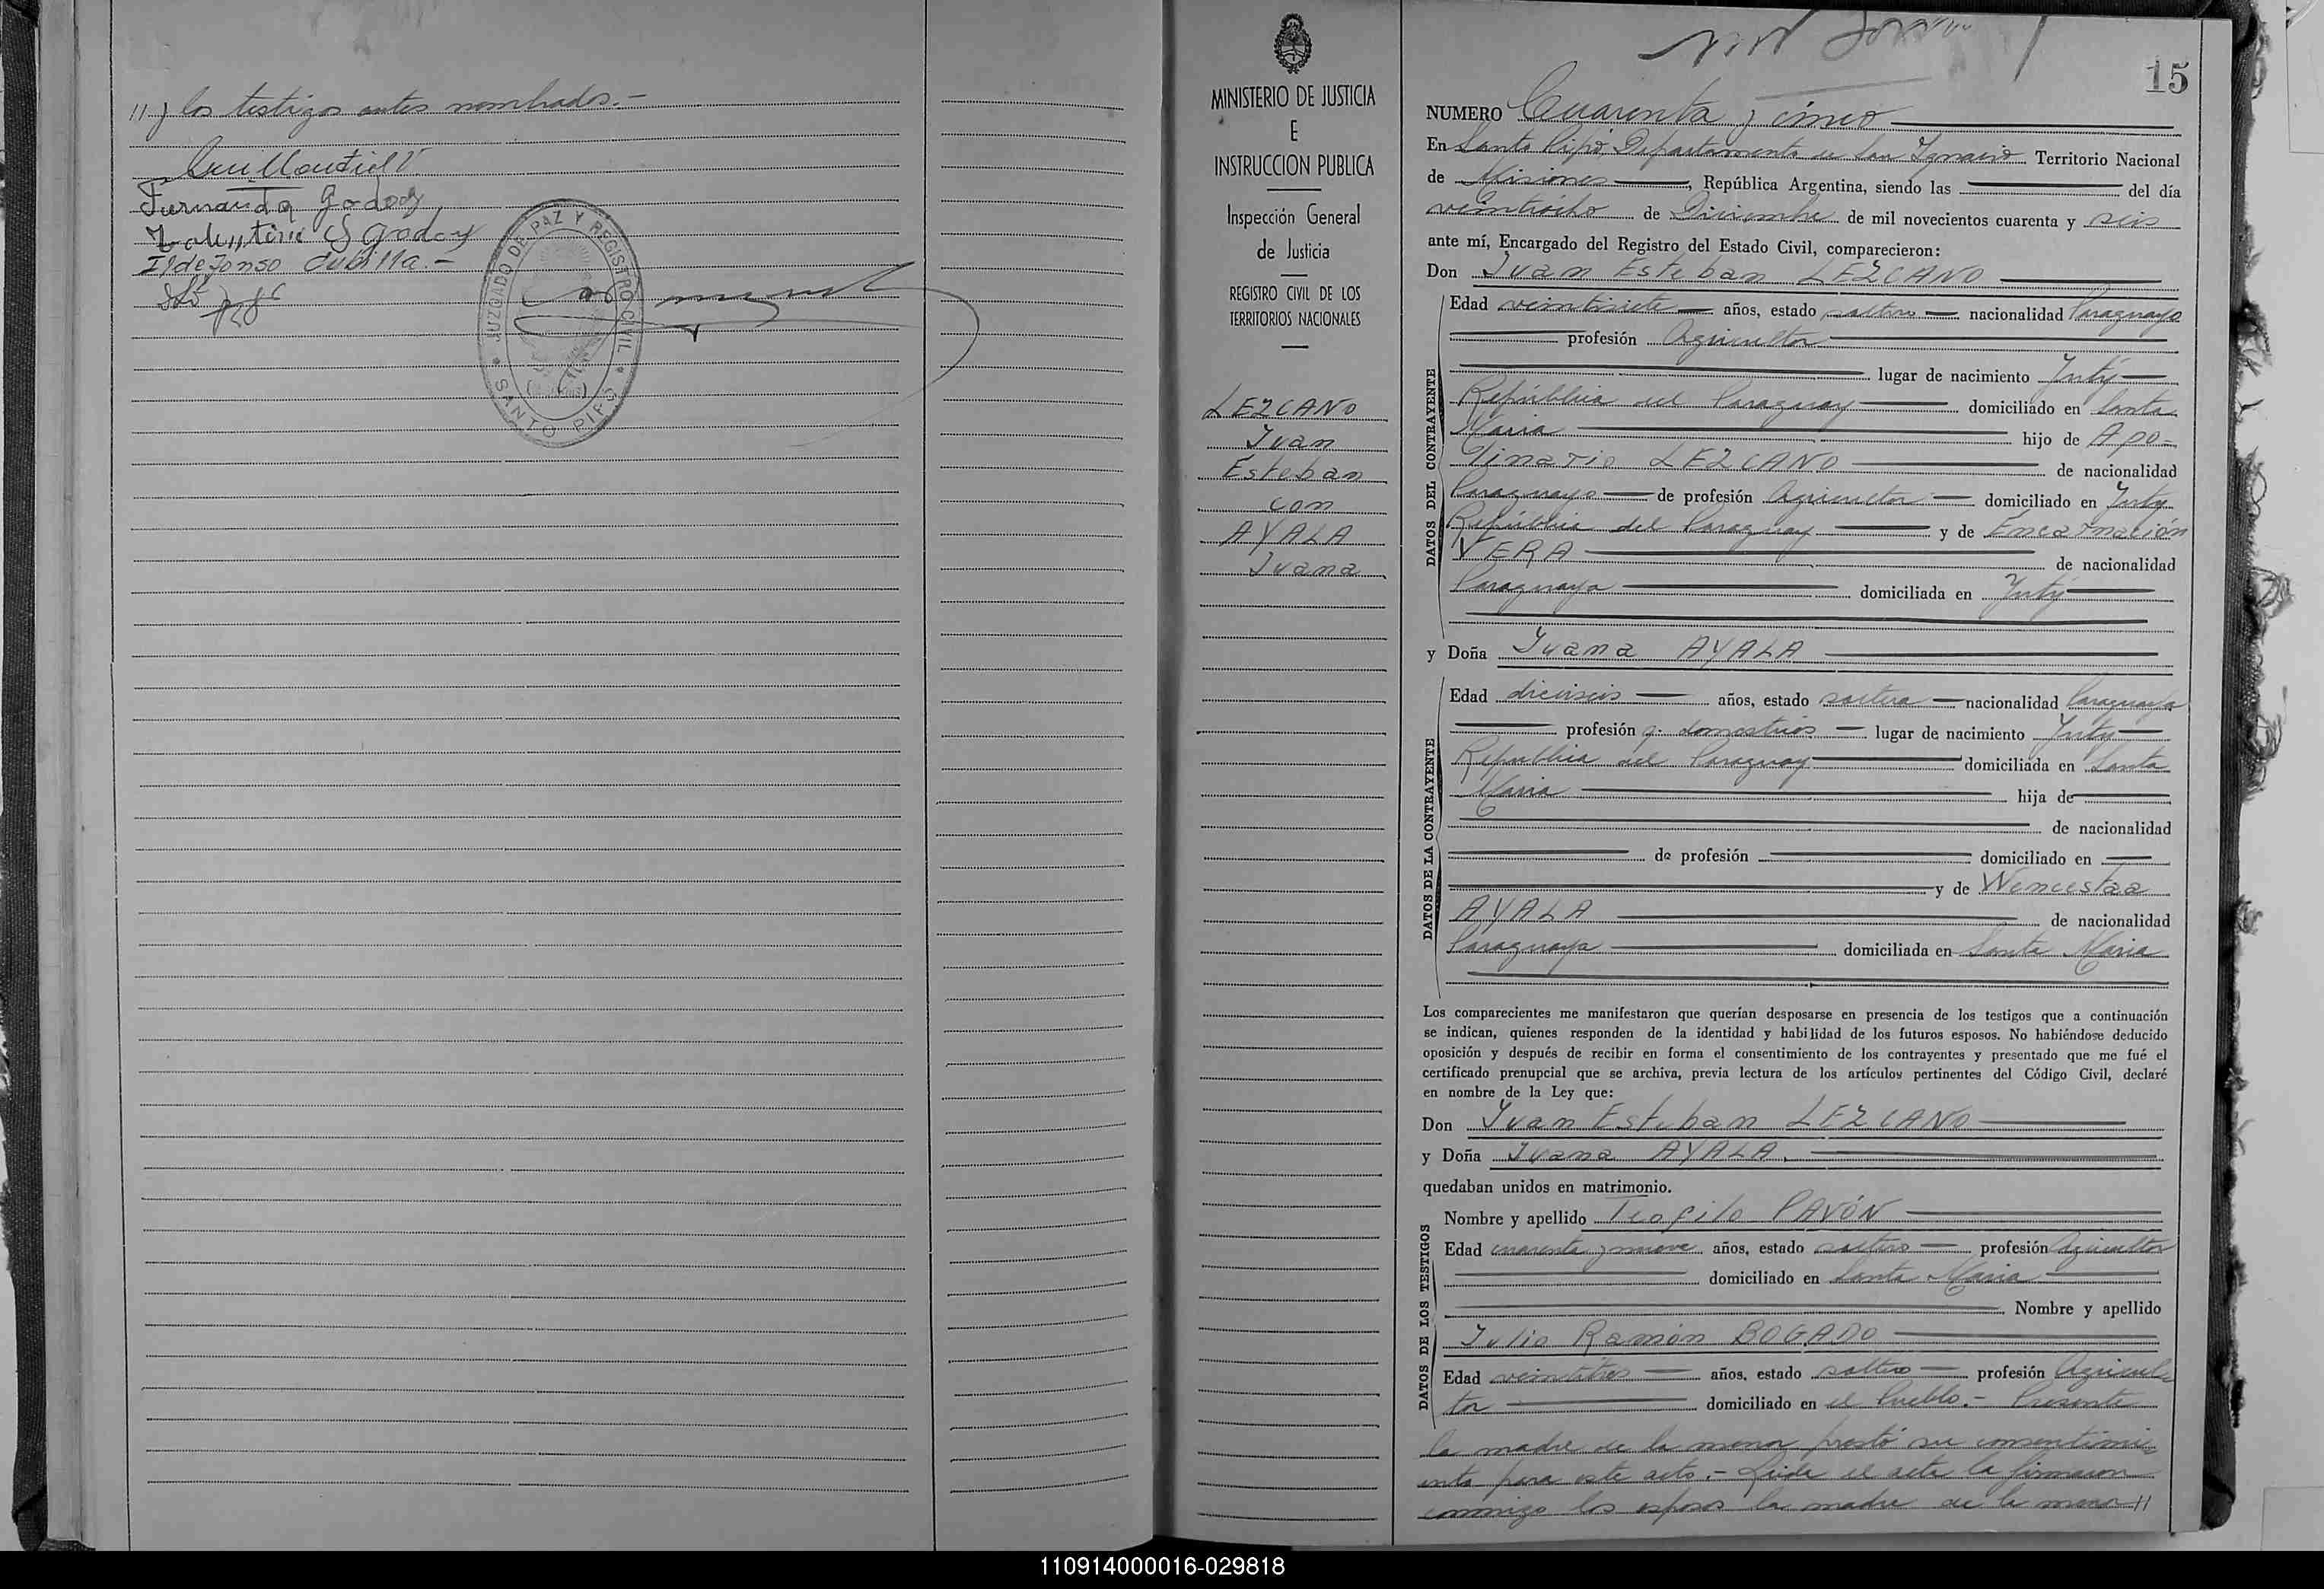 // y los testigos antes nombrados.-
Fernanda Godoy
Valentin S Godoy
Ildefonso Cubilla.-
JUZGADO DE PAZ Y REGISTRO CIVIL
SANTO PIPÓ
MINISTERIO DE JUSTICIA
E
INSTRUCCION PUBLICA
Inspección General
de Justicia
REGISTRO CIVIL DE LOS
TERRITORIOS NACIONALES
LEZCANO
Juan
Esteban
con
AYALA
Juana
15
NUMERO Cuarenta y cinco
En Santo Pipó, Departamento de San Ignacio Territorio Nacional
de Misiones, República Argentina, siendo las del día
veintiocho de Diciembre de mil novecientos cuarenta y seis
ante mí, Encargado del Registro del Estado Civil, comparecieron:
Don Juan Esteban LEZCANO
DATOS DEL CONTRAYENTE
Edad veintisiete años, estado soltero nacionalidad Paraguayo
profesión Agricultor
lugar de nacimiento Yuty
República del Paraguay domiciliado en Santa
María hijo de Apo-
linario LEZCANO de nacionalidad
Paraguayo de profesión Agricultor domiciliado en Yuty
República del Paraguay y de Encarnación
VERA de nacionalidad
Paraguaya domiciliada en Yuty
y Doña Juana AYALA
DATOS DE LA CONTRAYENTE
Edad dieciseis años, estado soltera nacionalidad Paraguaya
profesión q. domesticos lugar de nacimiento Yuty
República del Paraguay domiciliada en Santa
María hija de
de nacionalidad
de profesión domiciliado en
y de Wenceslaa
AYALA de nacionalidad
Paraguaya domiciliada en Santa María
Los comparecientes me manifestaron que querían desposarse en presencia de los testigos que a continuación
se indican, quienes responden de la identidad y habilidad de los futuros esposos. No habiéndose deducido
oposición y después de recibir en forma el consentimiento de los contrayentes y presentado que me fué el
certificado prenupcial que se archiva, previa lectura de los artículos pertinentes del Código Civil, declaré
en nombre de la Ley que:
Don Juan Esteban LEZCANO
y Doña Juana AYALA.
quedaban unidos en matrimonio.
DATOS DE LOS TESTIGOS
Nombre y apellido Teofilo PAVÓN
Edad cuarenta y nueve años, estado soltero profesión Agricultor
domiciliado en Santa María
Nombre y apellido
Julio Ramón BOGADO
Edad veintitres años, estado soltero profesión Agricul-
tor domiciliado en el Pueblo.- Presente
la madre de la menor prestó su consentimi-
ento para este acto.- Leída el acta la firmaron
conmigo los esposos la madre de la menor //
110914000016-029818